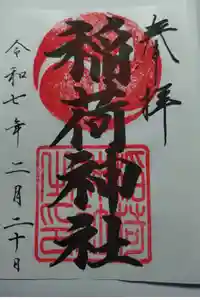 奉拝
稲荷神社
令和七年二月二十日